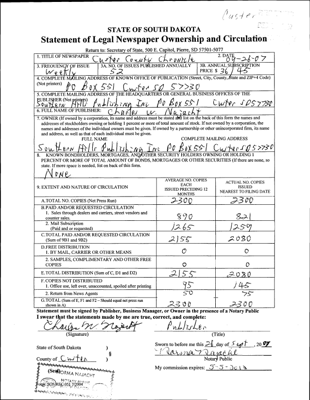 Custer
STATE OF SOUTH DAKOTA
Statement of Legal Newspaper Ownership and Circulation
Return to: Secretary of State, 500 E. Capitol, Pierre, SD 57501-5077
1. TITLE OF NEWSPAPER Custer County Chronicle
2. DATE 09-26-07
3. FREQUENCY OF ISSUE Weekly
3A. NO. OF ISSUES PUBLISHED ANNUALLY 52
3B. ANNUAL SUBSCRIPTION PRICE $ 36/45
4. COMPLETE MAILING ADDRESS OF KNOWN OFFICE OF PUBLICATION (Street, City, County, State and ZIP+4 Code)
(Not printers) PO Box 551 Custer SD 57730
5. COMPLETE MAILING ADDRESS OF THE HEADQUARTERS OF GENERAL BUSINESS OFFICES OF THE
PUBLISHER (Not printers)
Southern Hills Publishing Inc PO Box 551 Custer SD 57730
6. FULL NAME OF PUBLISHER: Charles W. Najacht
7. OWNER (If owned by a corporation, its name and address must be stated and also on the back of this form the names and
addresses of stockholders owning or holding 1 percent or more of total amount of stock. If not owned by a corporation, the
names and addresses of the individual owners must be given. If owned by a partnership or other unincorporated firm, its name
and address, as well as that of each individual must be given.
FULL NAME COMPLETE MAILING ADDRESS
Southern Hills Publishing Inc PO Box 551 Custer SD 57730
8. KNOWN BONDHOLDERS, MORTGAGES, AND OTHER SECURITY HOLDERS OWNING OR HOLDING 1
PERCENT OR MORE OF TOTAL AMOUNT OF BONDS, MORTGAGES OR OTHER SECURITIES (If there are none, so
state. If more space is needed, list on back of this form.
None
9. EXTENT AND NATURE OF CIRCULATION
AVERAGE NO. COPIES EACH ISSUED PRECEDING 12 MONTHS
ACTUAL NO. COPIES ISSUED NEAREST TO FILING DATE
A. TOTAL NO. COPIES (Net Press Run) 2300 2300
B. PAID AND/OR REQUESTED CIRCULATION
1. Sales through dealers and carriers, street vendors and
counter sales. 890 821
2. Mail Subscription
(Paid and or requested) 1265 1259
C. TOTAL PAID AND/OR REQUESTED CIRCULATION
(Sum of 9B1 and 9B2) 2155 2080
D. FREE DISTRIBUTION
1. BY MAIL, CARRIER OR OTHER MEANS 0 0
2. SAMPLES, COMPLIMENTARY AND OTHER FREE
COPIES 0 0
E. TOTAL DISTRIBUTION (Sum of C, D1 and D2) 2155 2080
F. COPIES NOT DISTRIBUTED
1. Office use, left over, unaccounted, spoiled after printing 95 145
2. Return from News Agents 50 75
G. TOTAL (Sum of E, F1 and F2 - Should equal net press run
shown in A) 2300 2300
Statement must be signed by Publisher, Business Manager, or Owner in the presence of a Notary Public
I swear that the statements made by me are true, correct, and complete:
Charles W Najacht Publisher
(Signature) (Title)
State of South Dakota )
§
County of Custer )
Sworn to before me this 26 day of Sept, 2007
Norma Najacht
Notary Public
(Seal)
NORMA NAJACHT
My commission expires: